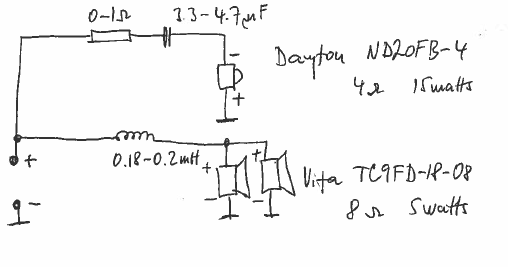 0-1Ω
3.3-4.7µF
-
+
Dayton ND20FB-4
4Ω 15watts
+
0.18-0.2mH
+
-
+
-
-
Vifa TC9FD-18-08
8Ω 5watts